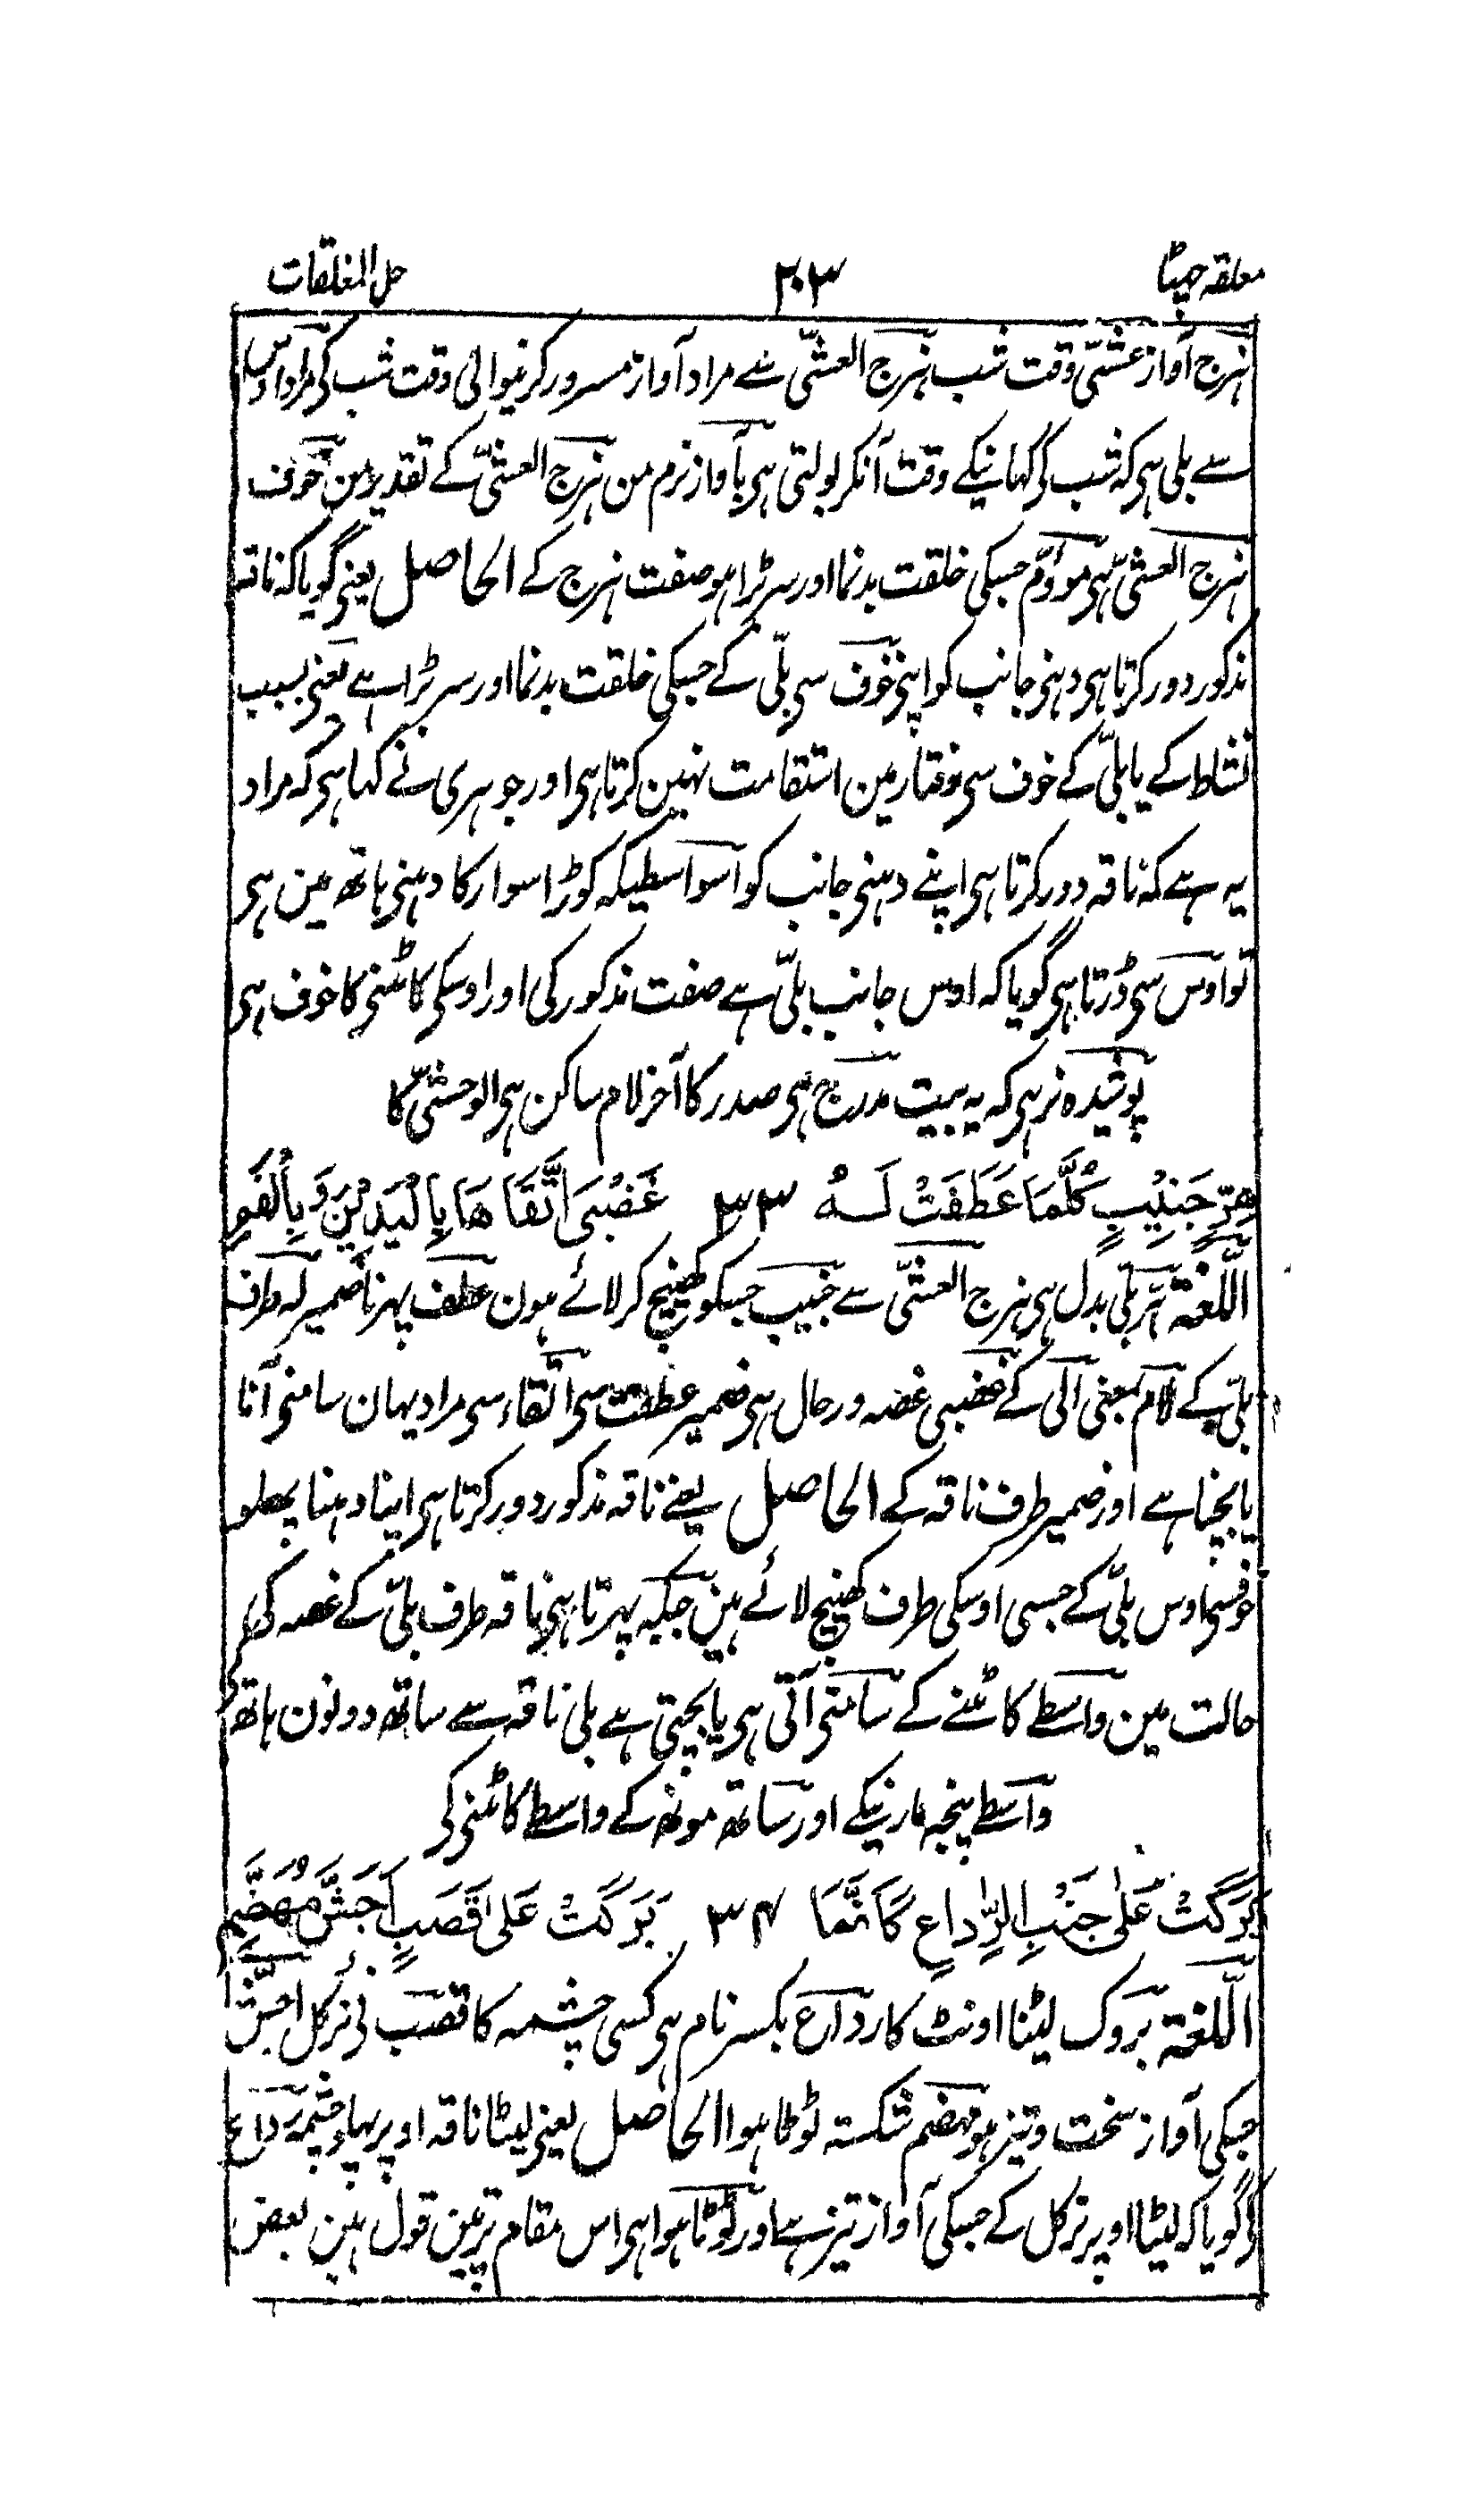 معلقہ چھٹا ۲۰۳ حل المغلقات
ہزج آواز عشیّ وقت شب ہزج العشیّ سے مراد آواز مسرور کرنیوالی وقت شب کی مراد اوس
سے بلی ہی کہ شب کی کہانیکے وقت آنکر بولتی ہی بآواز نرم من ہزج العشیّ کے تقدیر من خوف
ہزج العشیّ ہی مووّم جسکی خلقت بدنما اور سر بڑا ہو صفت ہزج کے الحاصل یعنی گویا کہ ناقہ
مذکور دور کرتا ہی دہنی جانب کو اپنی خوف سی بلّی کے جسکی خلقت بدنما اور سر بڑا ہے یعنی بسبب
نشاط کے یا بلّی کے خوف سی رفتار مین استقامت نہین کرتا ہی اور جوہری نے کہا ہی کہ مراد
یہ ہے کہ ناقہ دور کرتا ہی اپنے دہنی جانب کو اسواسطیکہ کوڑا سوار کا دہنی ہاتھ مین ہی
تو اوس سی ڈرتا ہی گویا کہ اوس جانب بلّی ہے صفت مذکور کی اور اوسکی کاٹنی کا خوف ہی
پوشیدہ نرہی کہ یہ بیت مدرج ہی صدر کا آخر لام ساکن ہی الوحشیّ کا
هِرٍّ جَنِيْبٍ كُلَّمَا عَطَفَتْ لَهُ ۳۳ غَضْبَى اتَّقَاهَا بِالْيَدَيْنِ وَبِالْفَمِ
اللّغة ہرّ بلّی بدل ہی ہزج العشیّ سے جنیب جسکو کھینچ کر لائے ہون عطف پہرنا ضمیر لہ طرف
بلّی کے لام بمعنی الی کے غضبی غضہ ور حال ہی ضمیر عطفت سی اتقاء سی مراد یہان سامنی آنا
یا بچنا ہے اور ضمیر طرف ناقہ کے الحاصل یعنے ناقہ مذکور دور کرتا ہی اپنا دہنا پہلو
خوفسی اوس بلّی کے جسی اوسکی طرف کھینچ لائے ہین جبکہ پہرتا ہی ناقہ طرف بلّی کے غصہ کی
حالت مین واسطے کاٹنے کے سامنی آتی ہی یا بچتی ہے بلی ناقہ سے ساتھ دونون ہاتھ
واسطے پنجہ مارنیکے اور ساتھ مونھ کے واسطے کاٹنی کی
بَرَكَتْ عَلَى جَنْبِ الرِّدَاعِ كَأَنَّمَا ۳۴ بَرَكَتْ عَلَى قَصَبٍ أَجَشَّ مُهَضَّمِ
اللّغة بروک لیٹنا اونٹ کا رداع بکسر نام ہی کسی چشمہ کا قصب نی نرکل اجشّ
جسکی آواز سخت و تیز ہو مہضم شکستہ ٹوٹا ہوا الحاصل یعنی لیٹا ناقہ اوپر پہلو چشمہ رداع
گویا کہ لیٹا اوپر نرکل کے جسکی آواز تیز ہے اور ٹوٹا ہوا ہی اس مقام پر تین قول ہین بعض